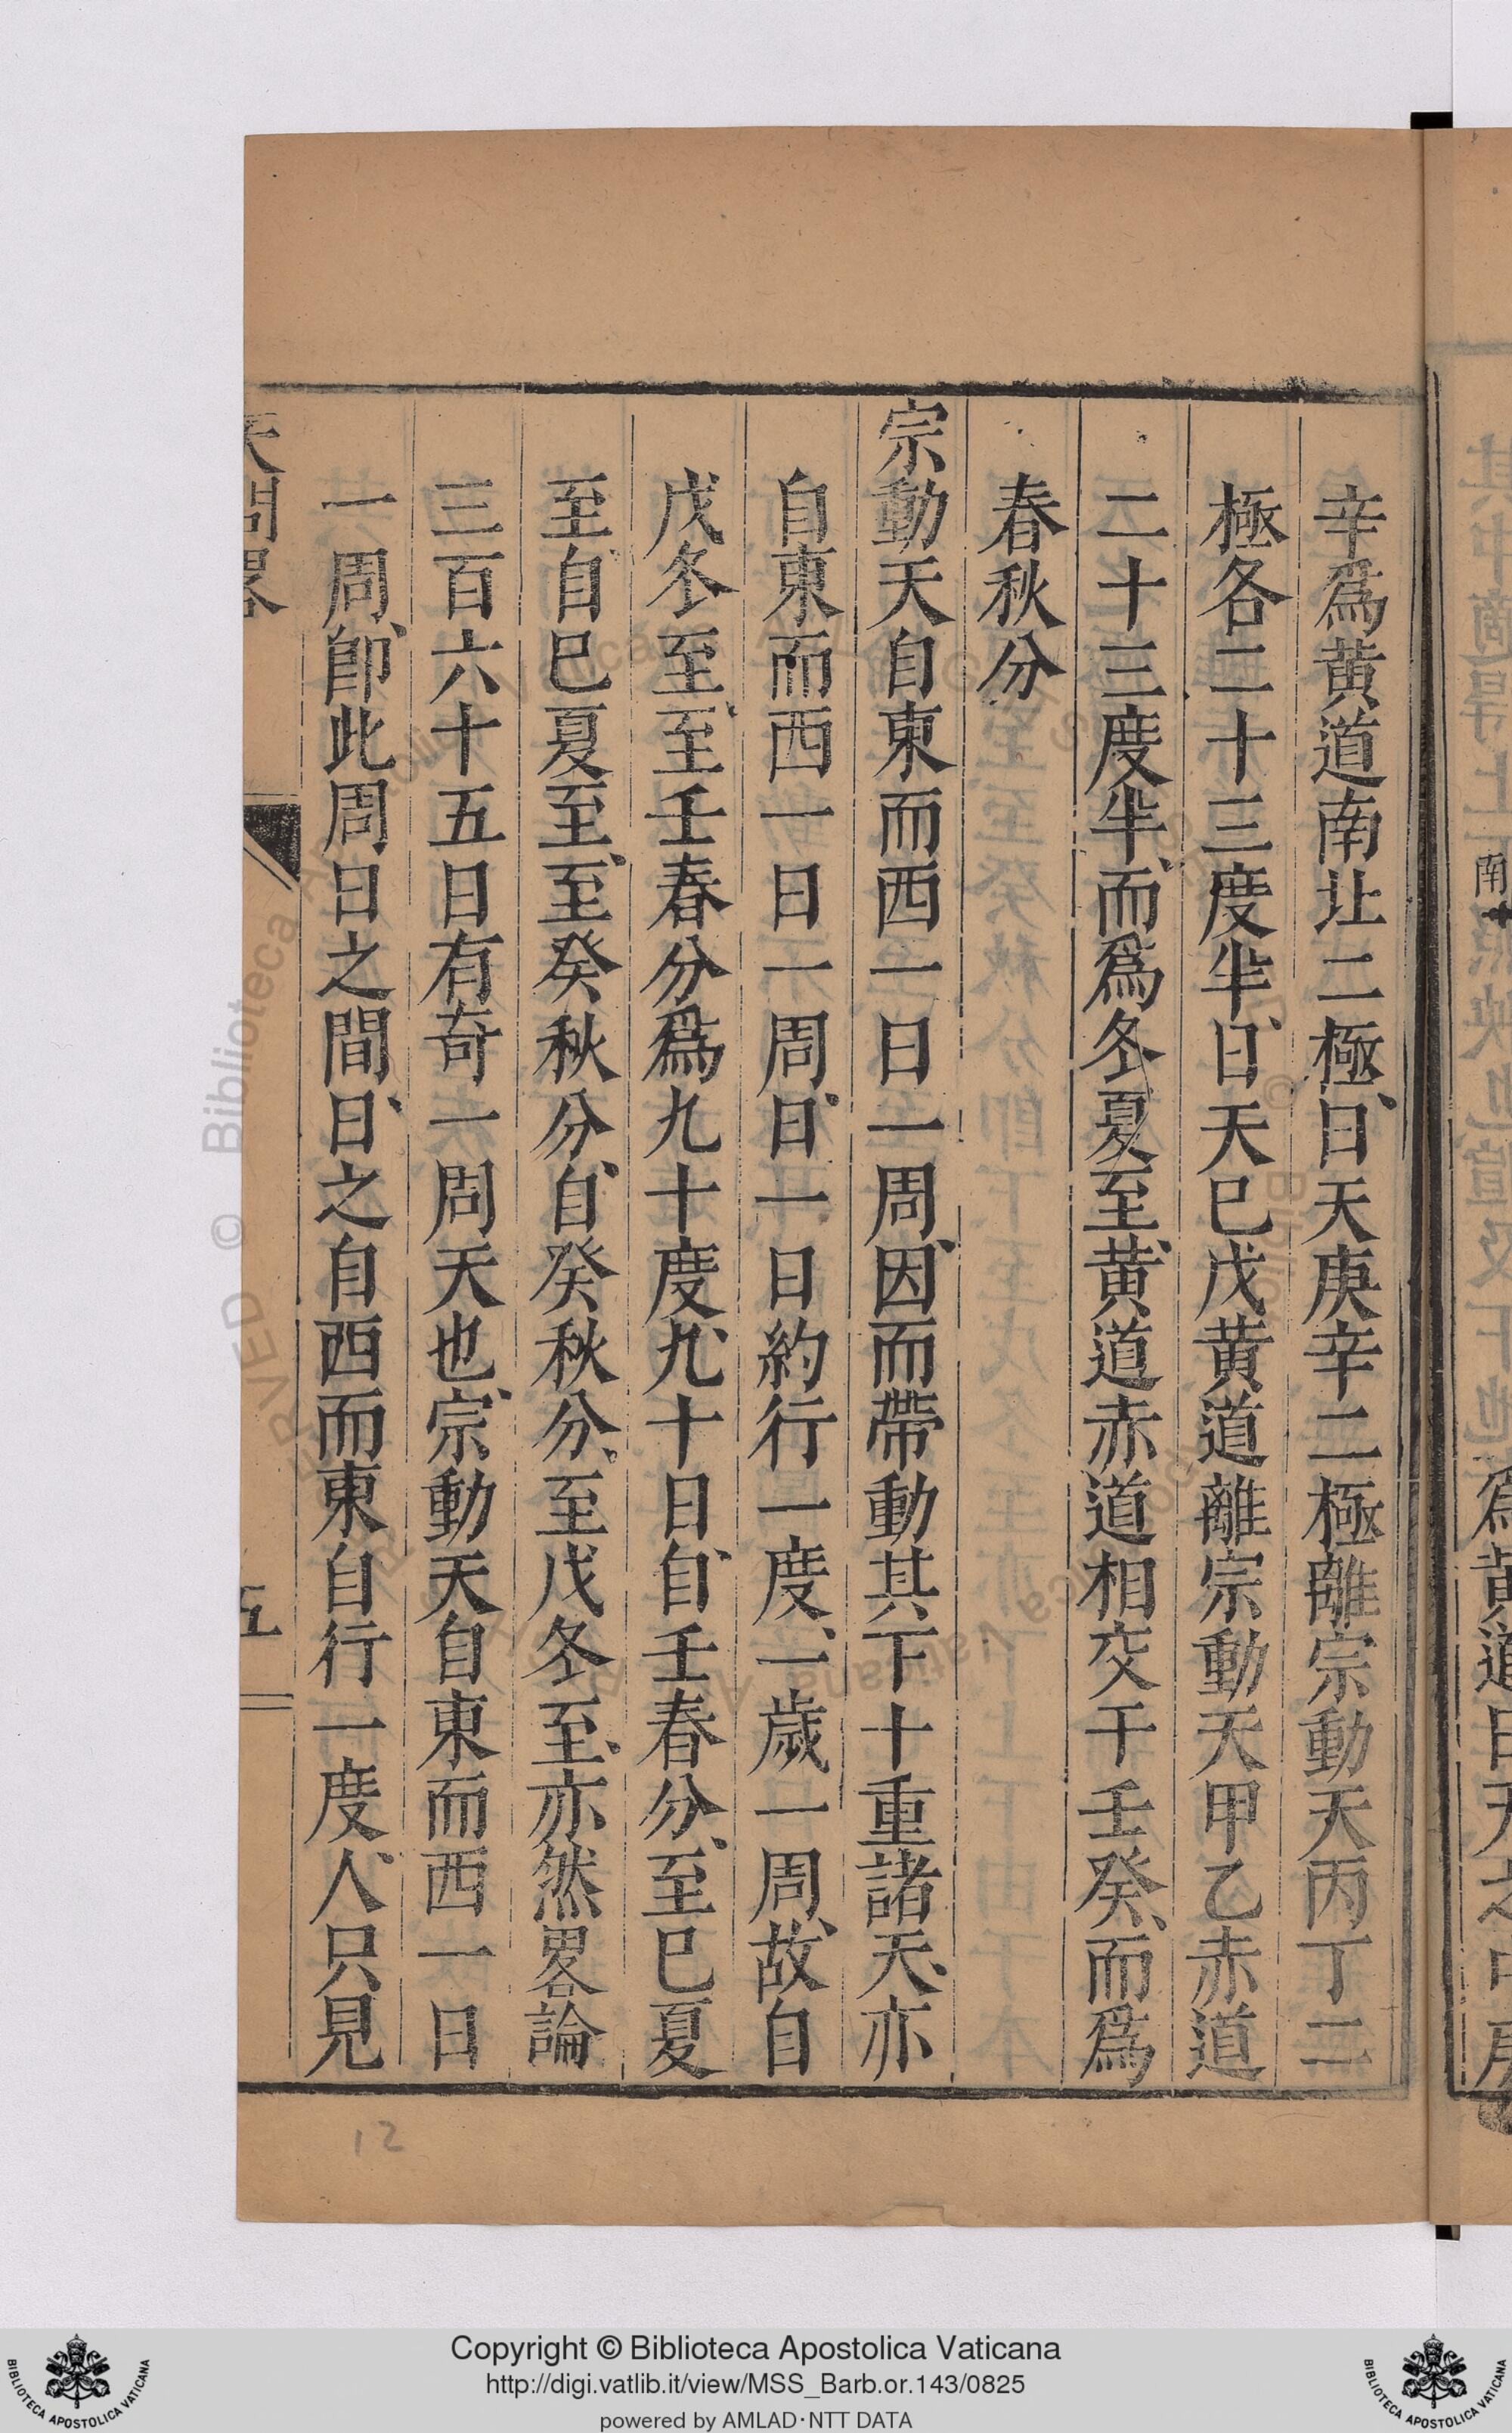 辛爲黃道南北二極、日天庚辛二極離宗動天丙丁二
極各二十三度半、日天巳戊黃道離宗動天甲乙赤道
二十三度半、而爲冬夏至、黃道赤道相交干壬癸、而爲
春秋分
宗動天自東而西一日一周、因而帶動其下十重諸天、亦
自東而西一日一周、日一日約行一度、一歲一周、故自
戊冬至、至壬春分爲九十度、九十日、自壬春分、至巳夏
至、自巳夏至、至癸秋分、自癸秋分、至戊冬至、亦然畧論
三百六十五日有奇一周天也、宗動天自東而西一日
一周、卽此周日之間、日之自西而東自行一度、人只見
天問畧
五
12
Copyright © Biblioteca Apostolica Vaticana
http://digi.vatlib.it/view/MSS_Barb.or.143/0825
powered by AMLAD·NTT DATA